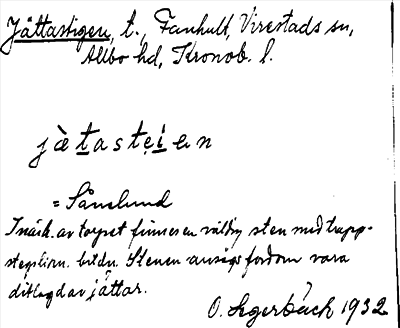 Jättastigen, t., Fanhult, Virestads sn,
Allbo hd, Kronob. l.
jä̀tastẹien
= Sånnlund
I närh. av torpet finnes en väldig sten med trapp-
stegslikn. bildn. Stenen anséges fordom vara
ditlagd av jättar.
O. Segerbäck 1932